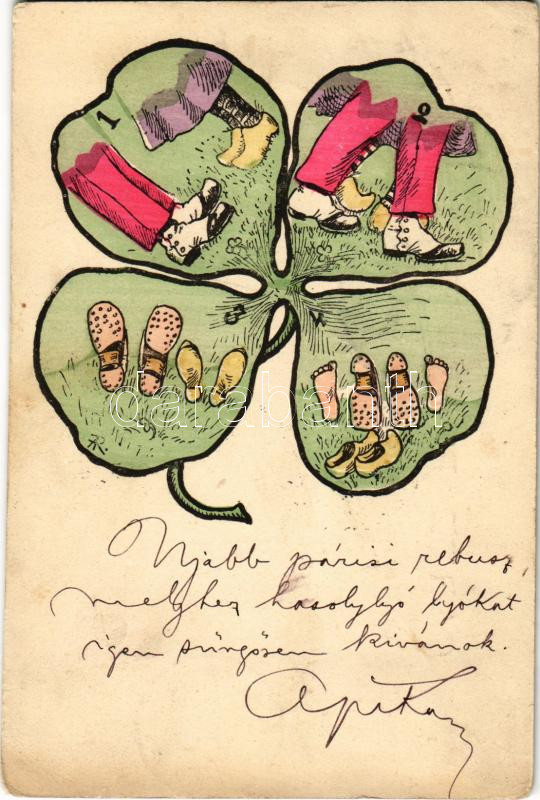 1
2
3
4
AR
darabanth
Ujabb párisi rebusz,
melyhez hasolylyó lyókat
igen sürgősen kivánok.
Apika